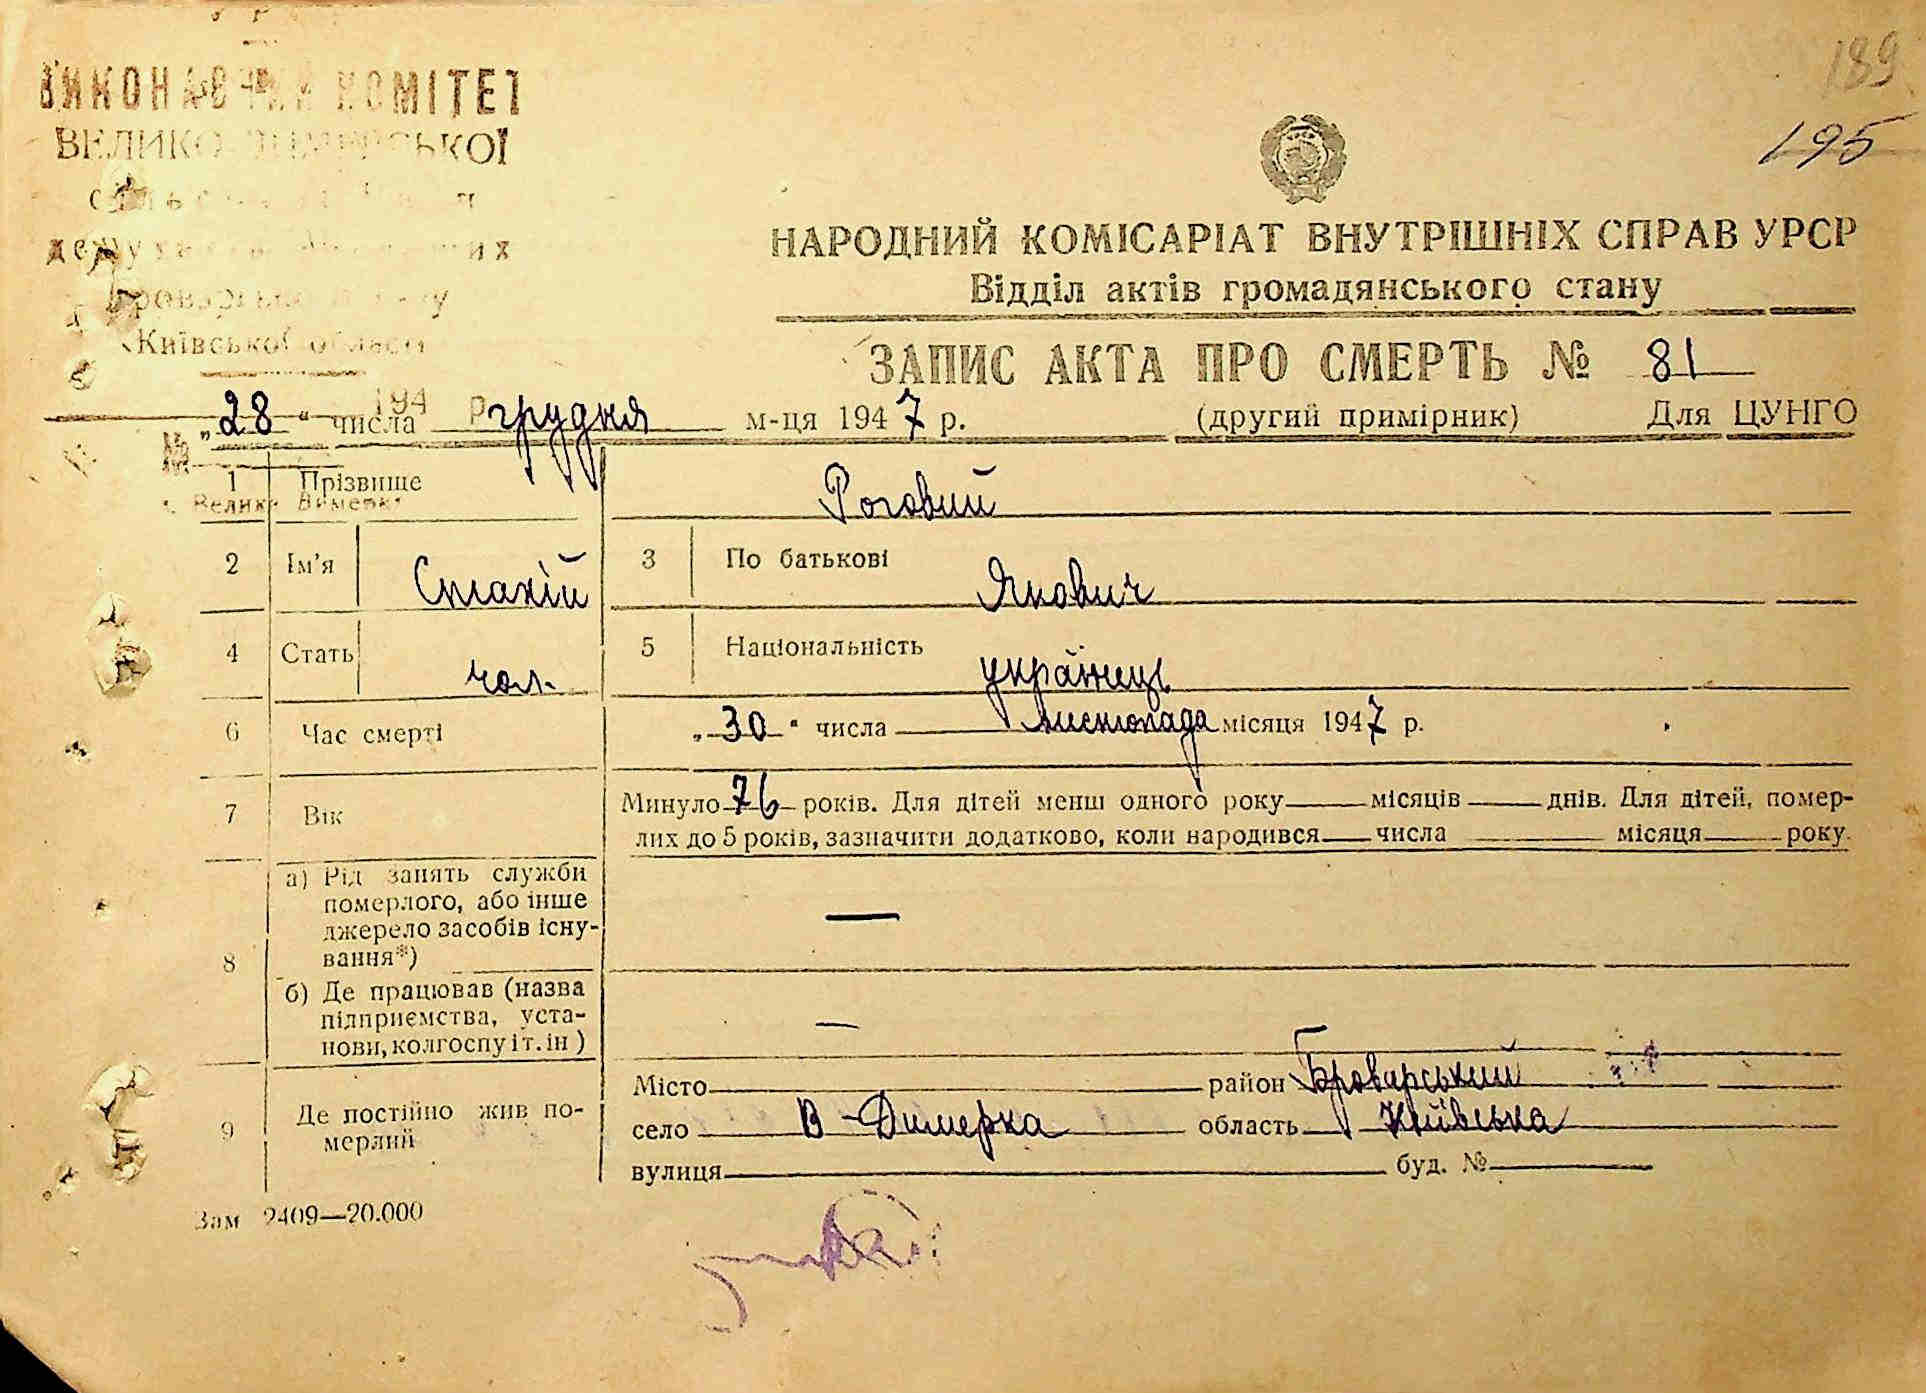 189
195
ВИКОНАВЧИЙ КОМІТЕТ
ВЕЛИКО-ДИМЕРСЬКОЇ
Київської області
194 р
УРСР
НАРОДНИЙ КОМІСАРІАТ ВНУТРІШНІХ СПРАВ УРСР
Відділ актів громадянського стану
ЗАПИС АКТА ПРО СМЕРТЬ № 81
„28“ числа грудня м-ця 1947 р. (другий примірник) Для ЦУНГО
№
1 Прізвище Роговий
с. Велика Димерка
2 Ім'я Стахій 3 По батькові Якович
4 Стать чол. 5 Національність українець
6 Час смерті „30“ числа листопада місяця 1947 р.
7 Вік Минуло 76 років. Для дітей менш одного року місяців днів. Для дітей, помер-
лих до 5 років, зазначити додатково, коли народився числа місяця року.
8 а) Рід занять служби
померлого, або інше
джерело засобів існу-
вання*) —
б) Де працював (назва
підприємства, уста-
нови, колгоспу і т. ін) —
9 Де постійно жив по-
мерлий
Місто район Броварський
село В-Димерка область Київська
вулиця буд. №
Зам 2409—20.000